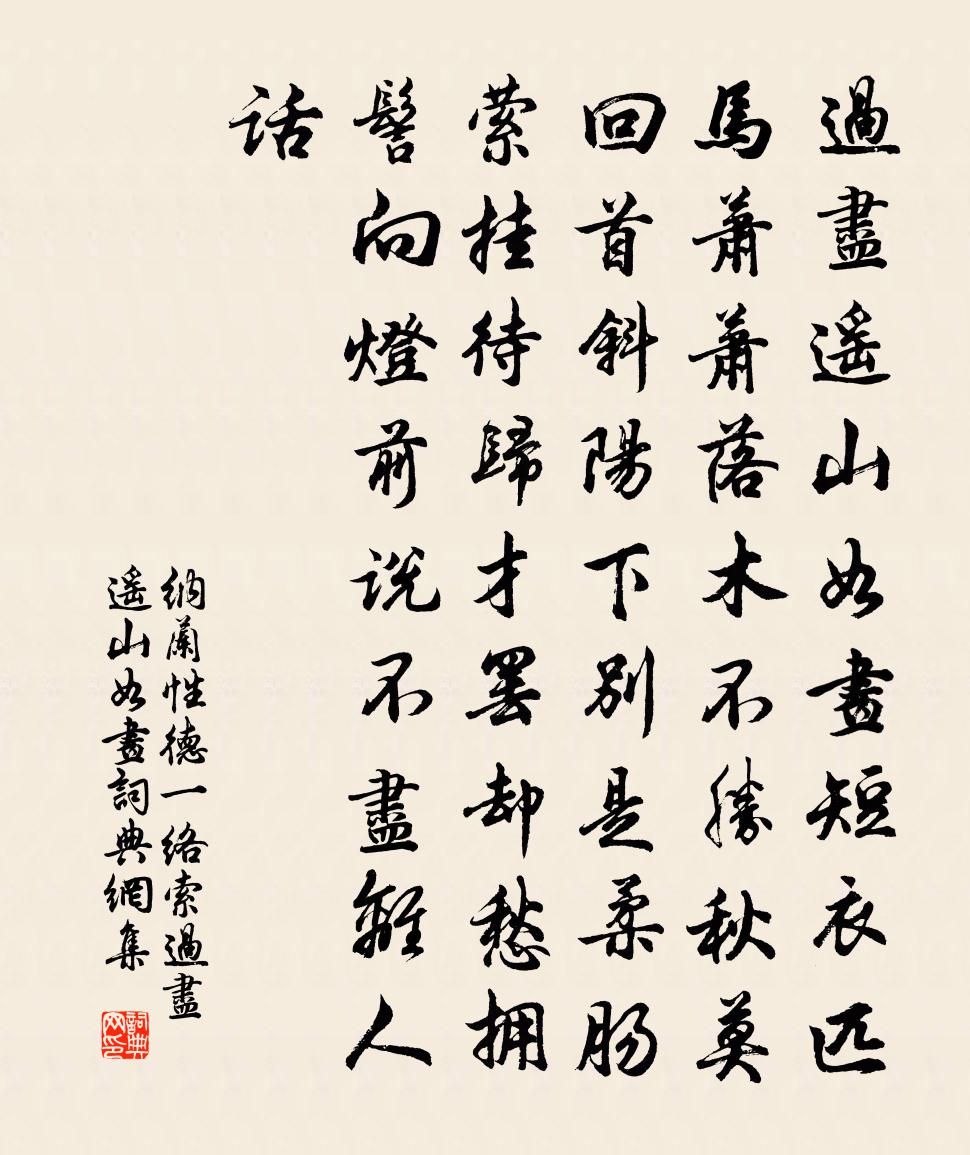 過盡遥山如畫短衣匹
馬蕭蕭落木不勝秋莫
回首斜陽下别是柔腸
縈挂待歸才罷却愁拥
髻向燈前说不盡離人
话
納蘭性德一络索過盡
遥山如畫詞典網集
詞典网印